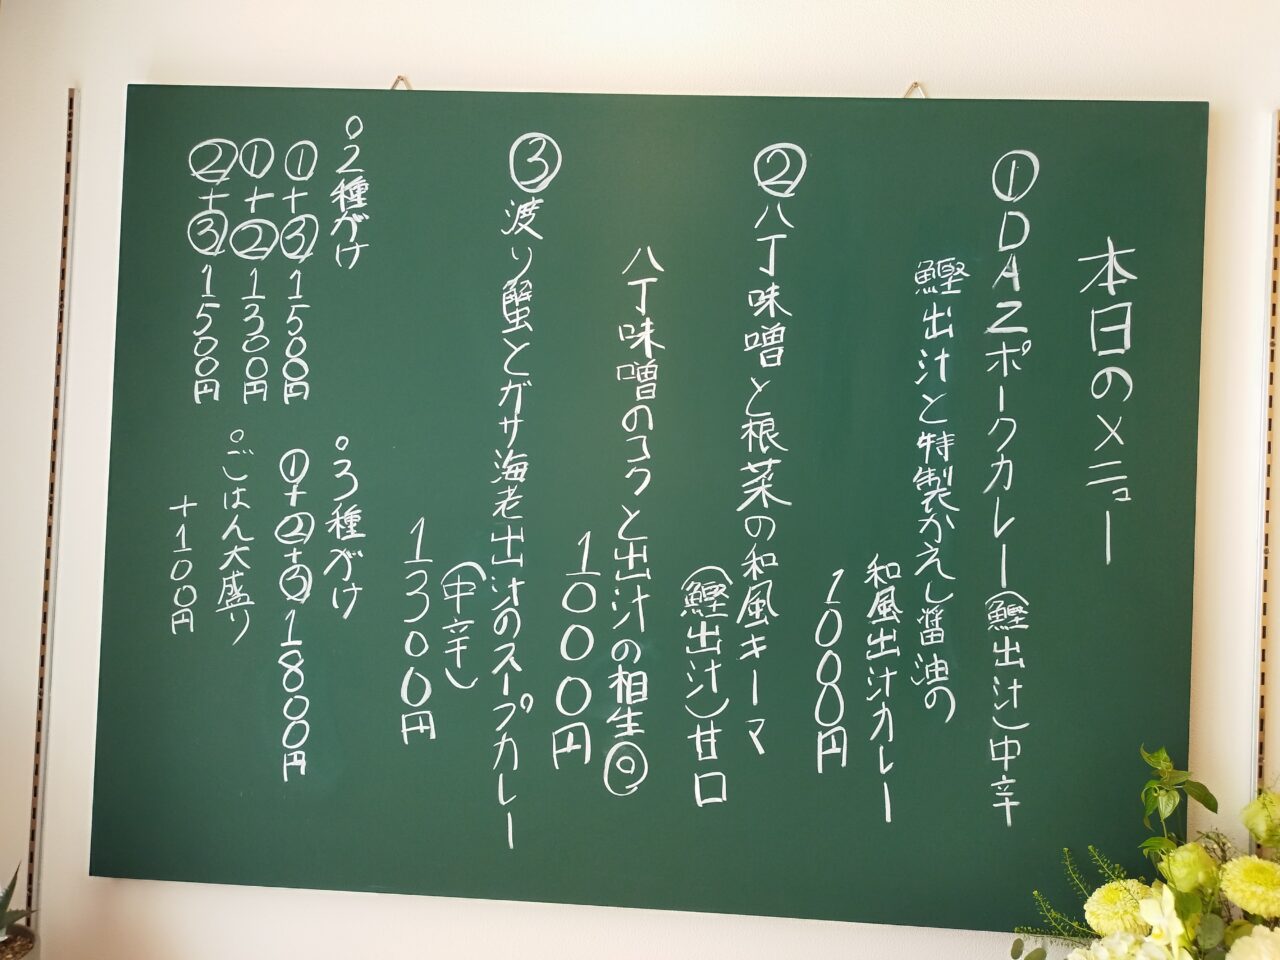 本日のメニュー
①DAZポークカレー(鰹出汁)中辛
鰹出汁と特製かえし醤油の
和風出汁カレー
1000円
②八丁味噌と根菜の和風キーマ
(鰹出汁)甘口
八丁味噌のコクと出汁の相生◎
1000円
③渡り蟹とガサ海老出汁のスープカレー
(中辛)
1300円
○2種がけ
①+③1500円
①+②1300円
②+③1500円
○3種がけ
①+②+③1800円
○ごはん大盛り
+100円